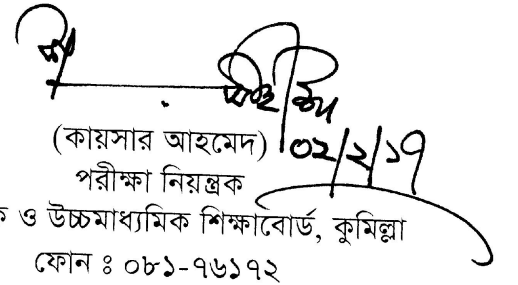 (কায়সার আহমেদ) ০২/২/১৭
পরীক্ষা নিয়ন্ত্রক
ক ও উচ্চমাধ্যমিক শিক্ষাবোর্ড, কুমিল্লা
ফোন ঃ ০৮১-৭৬১৭২